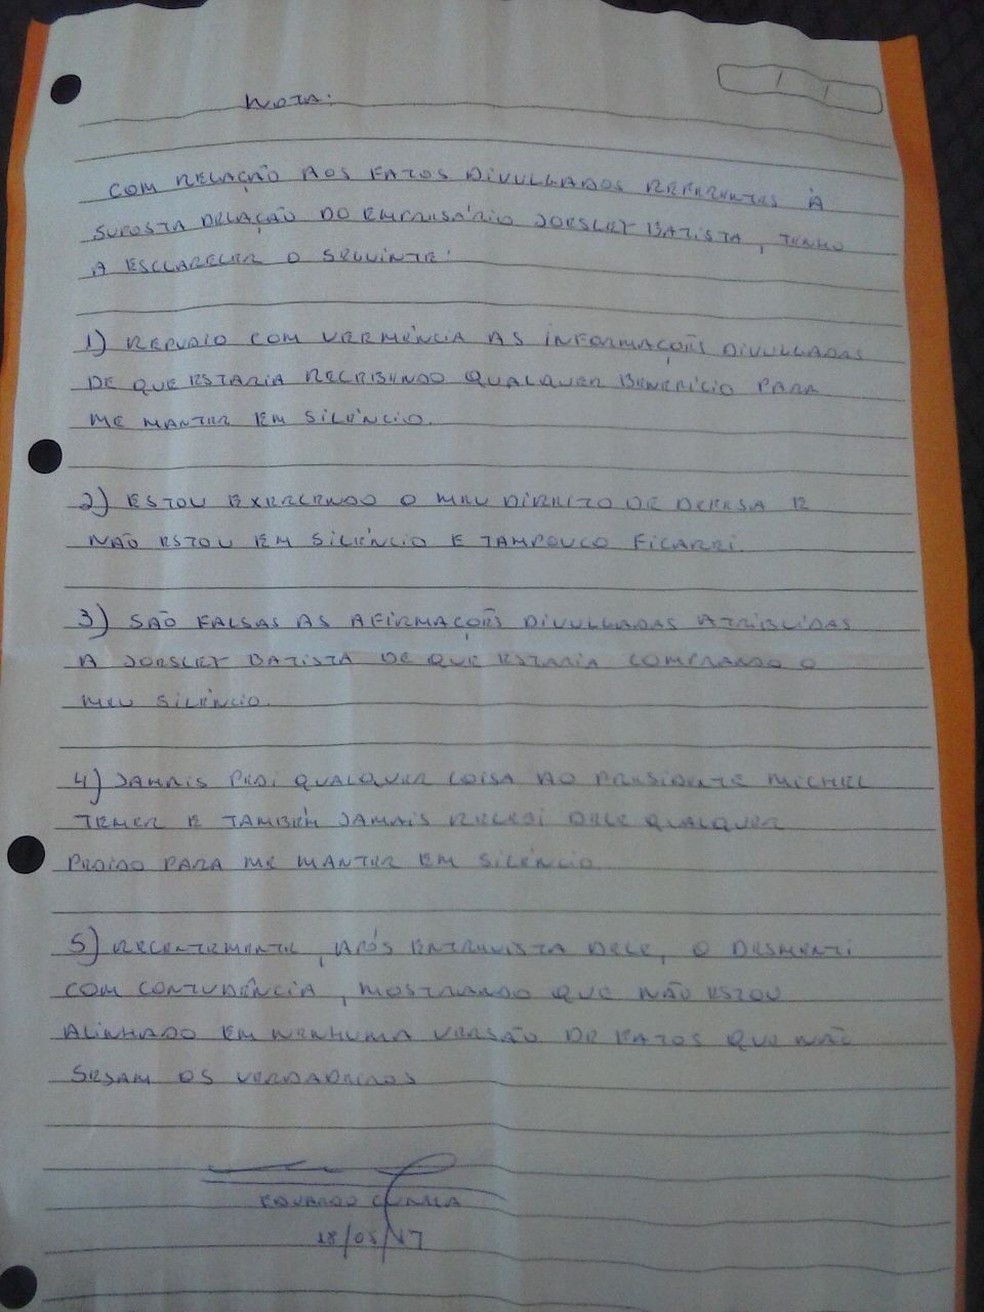 NOTA:
COM RELAÇÃO AOS FATOS DIVULGADOS REFERENTES À
SUPOSTA DELAÇÃO DO EMPRESÁRIO JOESLEY BATISTA, TENHO
A ESCLARECER O SEGUINTE:
1) REPUDIO COM VEEMÊNCIA AS INFORMAÇÕES DIVULGADAS
DE QUE ESTARIA RECEBENDO QUALQUER BENEFÍCIO PARA
ME MANTER EM SILÊNCIO.
2) ESTOU EXERCENDO O MEU DIREITO DE DEFESA E
NÃO ESTOU EM SILÊNCIO E TAMPOUCO FICAREI.
3) SÃO FALSAS AS AFIRMAÇÕES DIVULGADAS ATRIBUIDAS
A JOESLEY BATISTA DE QUE ESTARIA COMPRANDO O
MEU SILÊNCIO.
4) JAMAIS PEDI QUALQUER COISA AO PRESIDENTE MICHEL
TEMER E TAMBÉM JAMAIS RECEBI DELE QUALQUER
PEDIDO PARA ME MANTER EM SILÊNCIO
5) RECENTEMENTE, APÓS ENTREVISTA DELE, O DESMENTI
COM CONTUDÊNCIA, MOSTRANDO QUE NÃO ESTOU
ALINHADO EM NENHUMA VERSÃO DE FATOS QUE NÃO
SEJAM OS VERDADEIROS
EDUARDO CUNHA
18/05/17